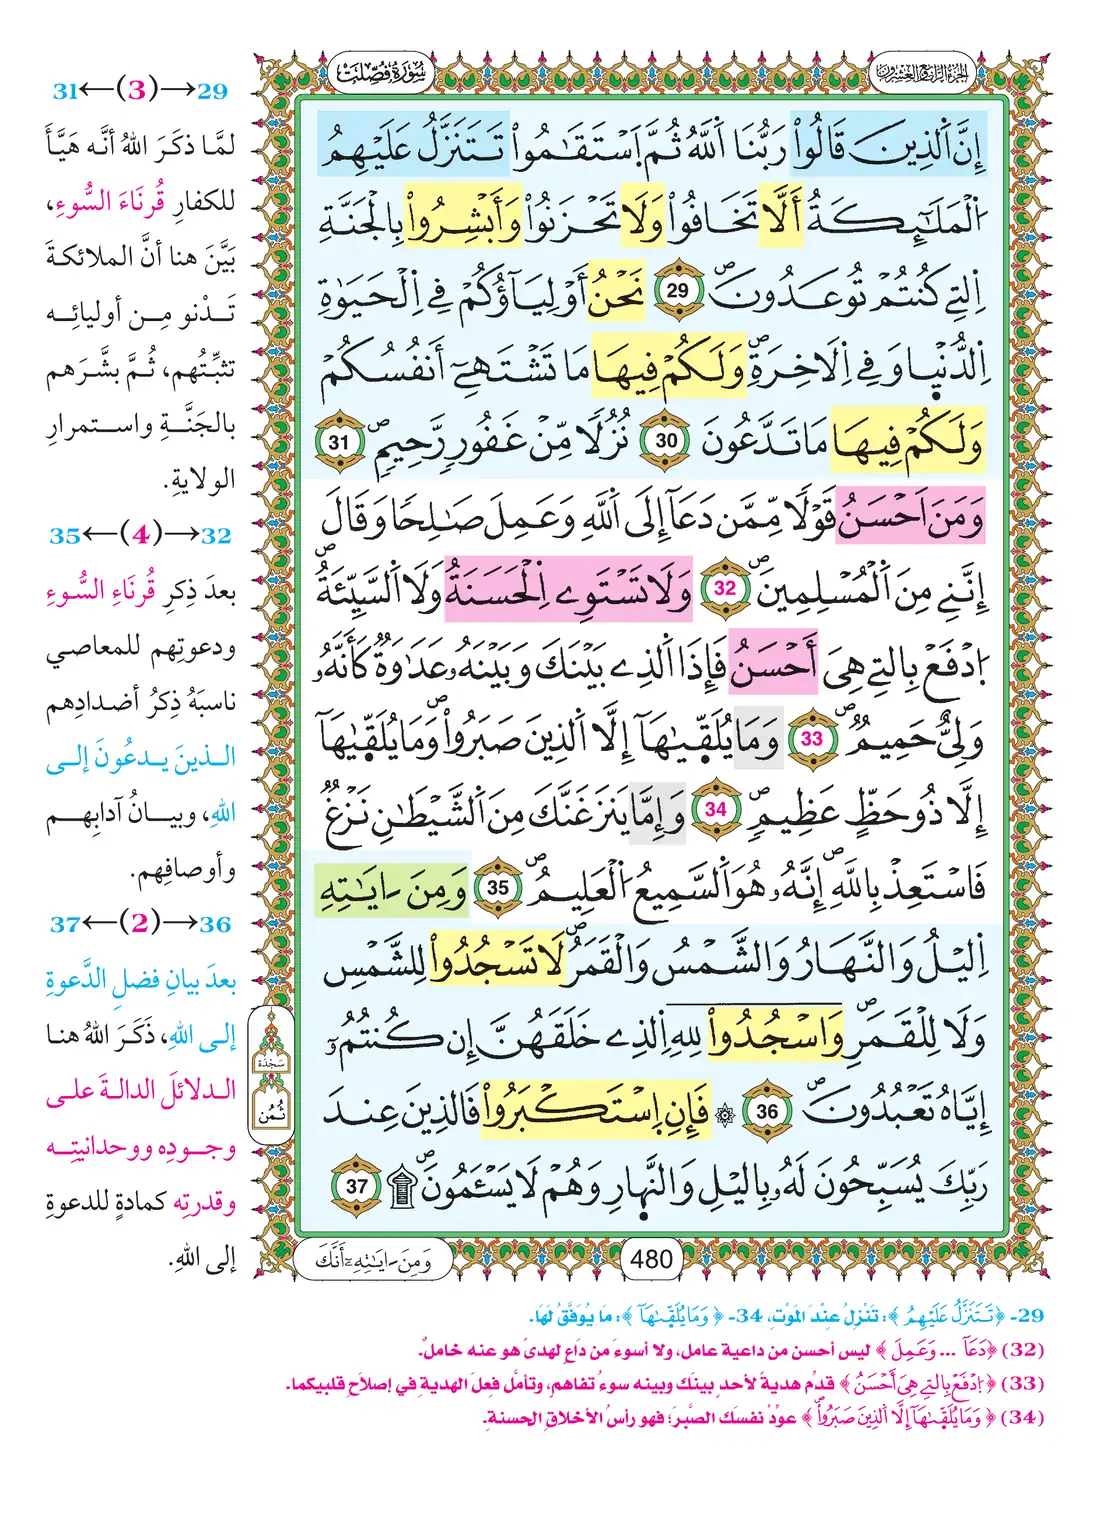 الجزء الرابع والعشرون
سورة فصلت
إِنَّ اَ۬لذِينَ قَالُواْ رَبُّنَا اَ۬للَّهُ ثُمَّ اَ۪سْتَقَٰمُواْ تَتَنَزَّلُ عَلَيْهِمُ
اُ۬لْمَلَٰٓئِكَةُ أَلَّا تَخَافُواْ وَلَا تَحْزَنُواْ وَأَبْشِرُواْ بِالْجَنَّةِ
اِ۬لتِي كُنتُمْ تُوعَدُونَۖ 29 نَحْنُ أَوْلِيَآؤُكُمْ فِي اِ۬لْحَيَوٰةِ
اِ۬لدُّنْي۪ا وَفِي اِ۬لَاخِرَةِۖ وَلَكُمْ فِيهَا مَا تَشْتَهِےٓ أَنفُسُكُمْ
وَلَكُمْ فِيهَا مَا تَدَّعُونَ 30 نُزُلًا مِّنْ غَفُورٍ رَّحِيمٍۖ 31
وَمَنَ اَحْسَنُ قَوْلًا مِّمَّن دَعَآ إِلَى اَ۬للَّهِ وَعَمِلَ صَٰلِحًا وَقَالَ
إِنَّنِے مِنَ اَ۬لْمُسْلِمِينَۖ 32 وَلَا تَسْتَوِے اِ۬لْحَسَنَةُ وَلَا اَ۬لسَّيِّئَةُۖ
اُ۪دْفَعْ بِالتِي هِيَ أَحْسَنُ فَإِذَا اَ۬لذِے بَيْنَكَ وَبَيْنَهُۥ عَدَٰوَةٌ كَأَنَّهُۥ
وَلِيٌّ حَمِيمٌۖ 33 وَمَا يُلَقّ۪ىٰهَآ إِلَّا اَ۬لذِينَ صَبَرُواْۖ وَمَا يُلَقّ۪ىٰهَآ
إِلَّا ذُو حَظٍّ عَظِيمٍۖ 34 وَإِمَّا يَنزَغَنَّكَ مِنَ اَ۬لشَّيْطَٰنِ نَزْغٌ
فَاسْتَعِذْ بِاللَّهِۖ إِنَّهُۥ هُوَ اَ۬لسَّمِيعُ اُ۬لْعَلِيمُۖ 35 وَمِنَ ءايَٰتِهِ
اِ۬ليْلُ وَالنَّهَارُ وَالشَّمْسُ وَالْقَمَرُۖ لَا تَسْجُدُواْ لِلشَّمْسِ
وَلَا لِلْقَمَرِۖ وَاسْجُدُواْ لِلهِ اِ۬لذِے خَلَقَهُنَّ إِن كُنتُمُۥٓ
إِيَّاهُ تَعْبُدُونَۖ 36 ۞ فَإِنِ اِ۪سْتَكْبَرُواْ فَالذِينَ عِندَ
رَبِّكَ يُسَبِّحُونَ لَهُۥ بِاليْلِ وَالنَّه۪ارِ وَهُمْ لَا يَسْـَٔمُونَۖ ۩ 37
سَجْدَة
ثُمُن
480
وَمِنَ ءايَٰتِهِۦٓ أَنَّكَ
29→(3)←31
لمَّا ذكَرَ اللهُ أنَّه هَيَّأَ
للكفارِ قُرنَاءَ السُّوءِ،
بَيَّنَ هنا أنَّ الملائكةَ
تَدْنو مِن أوليائِه
تثبِّتُهم، ثُمَّ بشَّرَهم
بالجَنَّةِ واستمرارِ
الولايةِ.
32→(4)←35
بعدَ ذِكرِ قُرنَاءِ السُّوءِ
ودعوتِهم للمعاصي
ناسبَهُ ذِكرُ أضدادِهم
الذينَ يدعُونَ إلى
اللهِ، وبيانُ آدابِهم
وأوصافِهم.
36→(2)←37
بعدَ بيانِ فضلِ الدَّعوةِ
إلى اللهِ، ذَكَرَ اللهُ هنا
الدلائلَ الدالةَ على
وجودِه ووحدانيتِه
وقدرتِه كمادةٍ للدعوةِ
إلى اللهِ.
29- ﴿تَتَنَزَّلُ عَلَيْهِمُ﴾: تَنْزِلُ عِنْدَ المَوْتِ، 34- ﴿وَمَا يُلَقّ۪ىٰهَآ﴾: مَا يُوَفَّقُ لَهَا.
(32) ﴿دَعَآ ... وَعَمِلَ﴾ ليس أحسن من داعية عامل، ولا أسوءَ من داعٍ لهدىً هو عنه خاملٌ.
(33) ﴿اُ۪دْفَعْ بِالتِي هِيَ أَحْسَنُ﴾ قدِّم هديةً لأحدٍ بينَك وبينه سوءُ تفاهمٍ، وتأمَّل فِعلَ الهديةِ في إصلاحِ قلبيكما.
(34) ﴿وَمَا يُلَقّ۪ىٰهَآ إِلَّا اَ۬لذِينَ صَبَرُواْۖ﴾ عوِّدْ نفسَك الصَّبرَ؛ فهو رأسُ الأخلاقِ الحسنةِ.